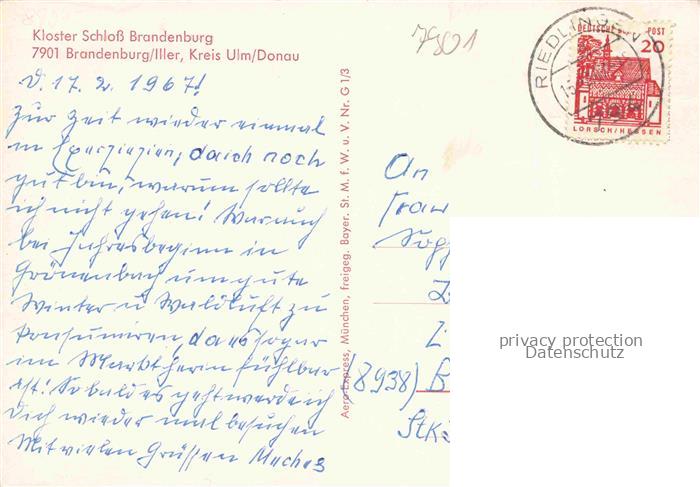 Kloster Schloß Brandenburg
7901 Brandenburg/Iller, Kreis Ulm/Donau
7901
RIEDLINGEN
DEUTSCHE BUNDESPOST
20
LORSCH/HESSEN
D. 17. 2. 1967!
Zur Zeit wieder einmal
in Exerzizien, da ich noch
gut bin, warum sollte
ich nicht gehen! War auch
bei Jahresbeginn in
Grönenbach um gute
Winter u Waldluft zu
konsumieren, da es sogar
im Marktherin fühlbar
ist! Sobald es geht werde ich
Dich wieder mal besuchen
Mit vielen Grüssen
Aero-Express, München, freigeg. Bayer. St. M. f. W. u. V. Nr. G 1/3
An
Frau
Soph
(8938) B
Stk
privacy protection
Datenschutz